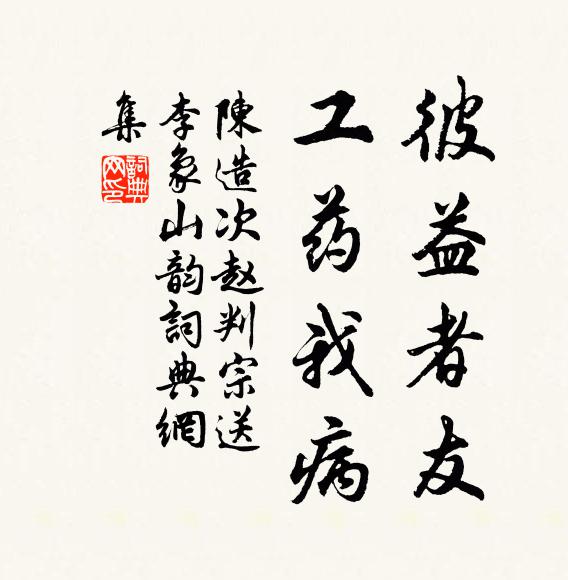 彼益者友
工药我病
陳造次赵判宗送
李象山韵詞典網
集
詞典网印